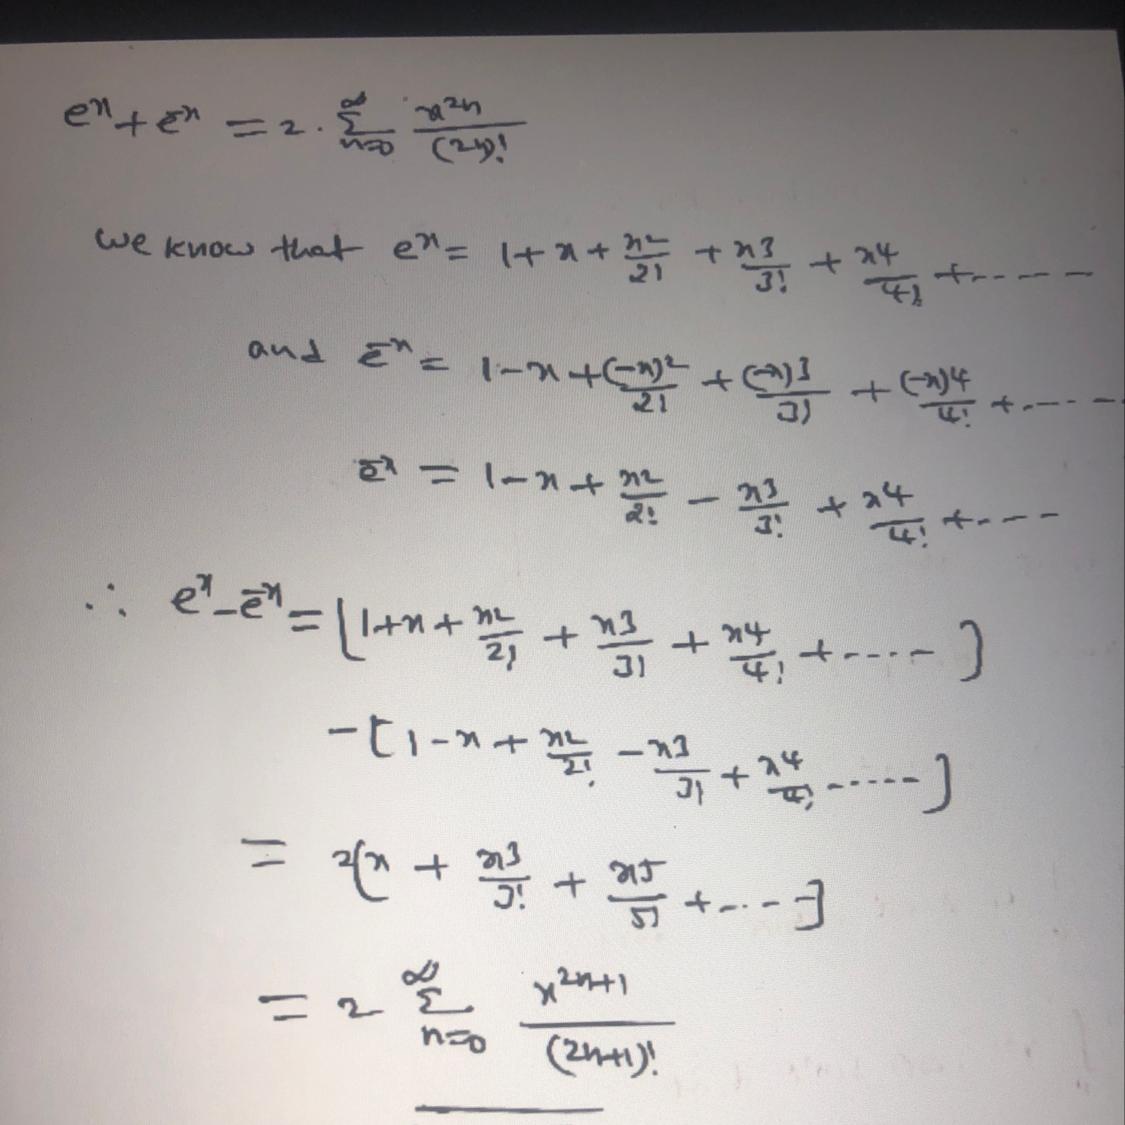 eˣ + e⁻ˣ = 2 · ∞Σn=0 x²ⁿ/(2n)!
we know that eˣ = 1 + x + x²/2! + x³/3! + x⁴/4! + -----
and e⁻ˣ = 1 - x + (-x)²/2! + (-x)³/3! + (-x)⁴/4! + -----
e⁻ˣ = 1 - x + x²/2! - x³/3! + x⁴/4! + ----
∴ eˣ - e⁻ˣ = [1 + x + x²/2! + x³/3! + x⁴/4! + -----]
- [1 - x + x²/2! - x³/3! + x⁴/4! ------]
= 2[x + x³/3! + x⁵/5! + -----]
= 2 ∞Σn=0 x²ⁿ⁺¹/(2n+1)!